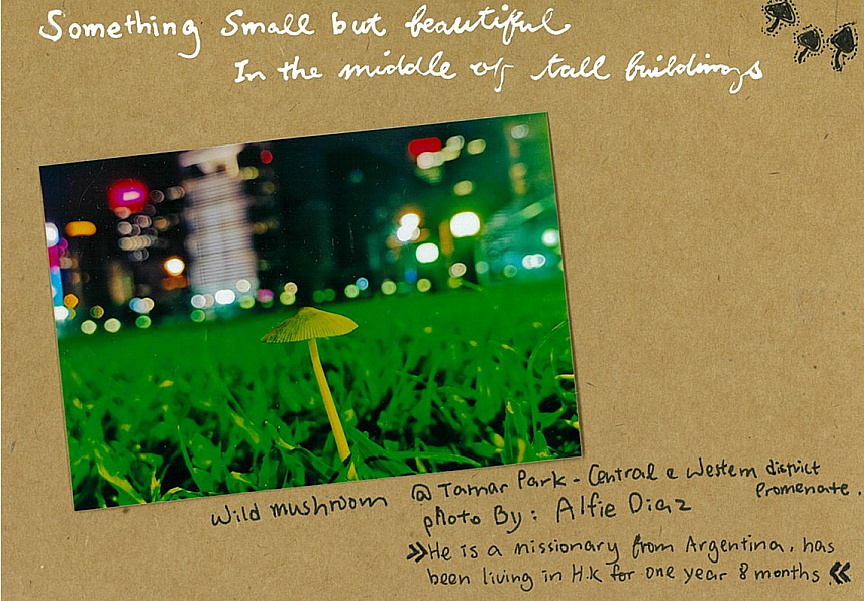 Something Small but beautiful
In the middle of tall buildings
Wild mushroom
@ Tamar Park - Central & Western district
Promenate.
photo By: Alfie Diaz
»He is a missionary from Argentina, has
been living in H.K for one year 8 months.«